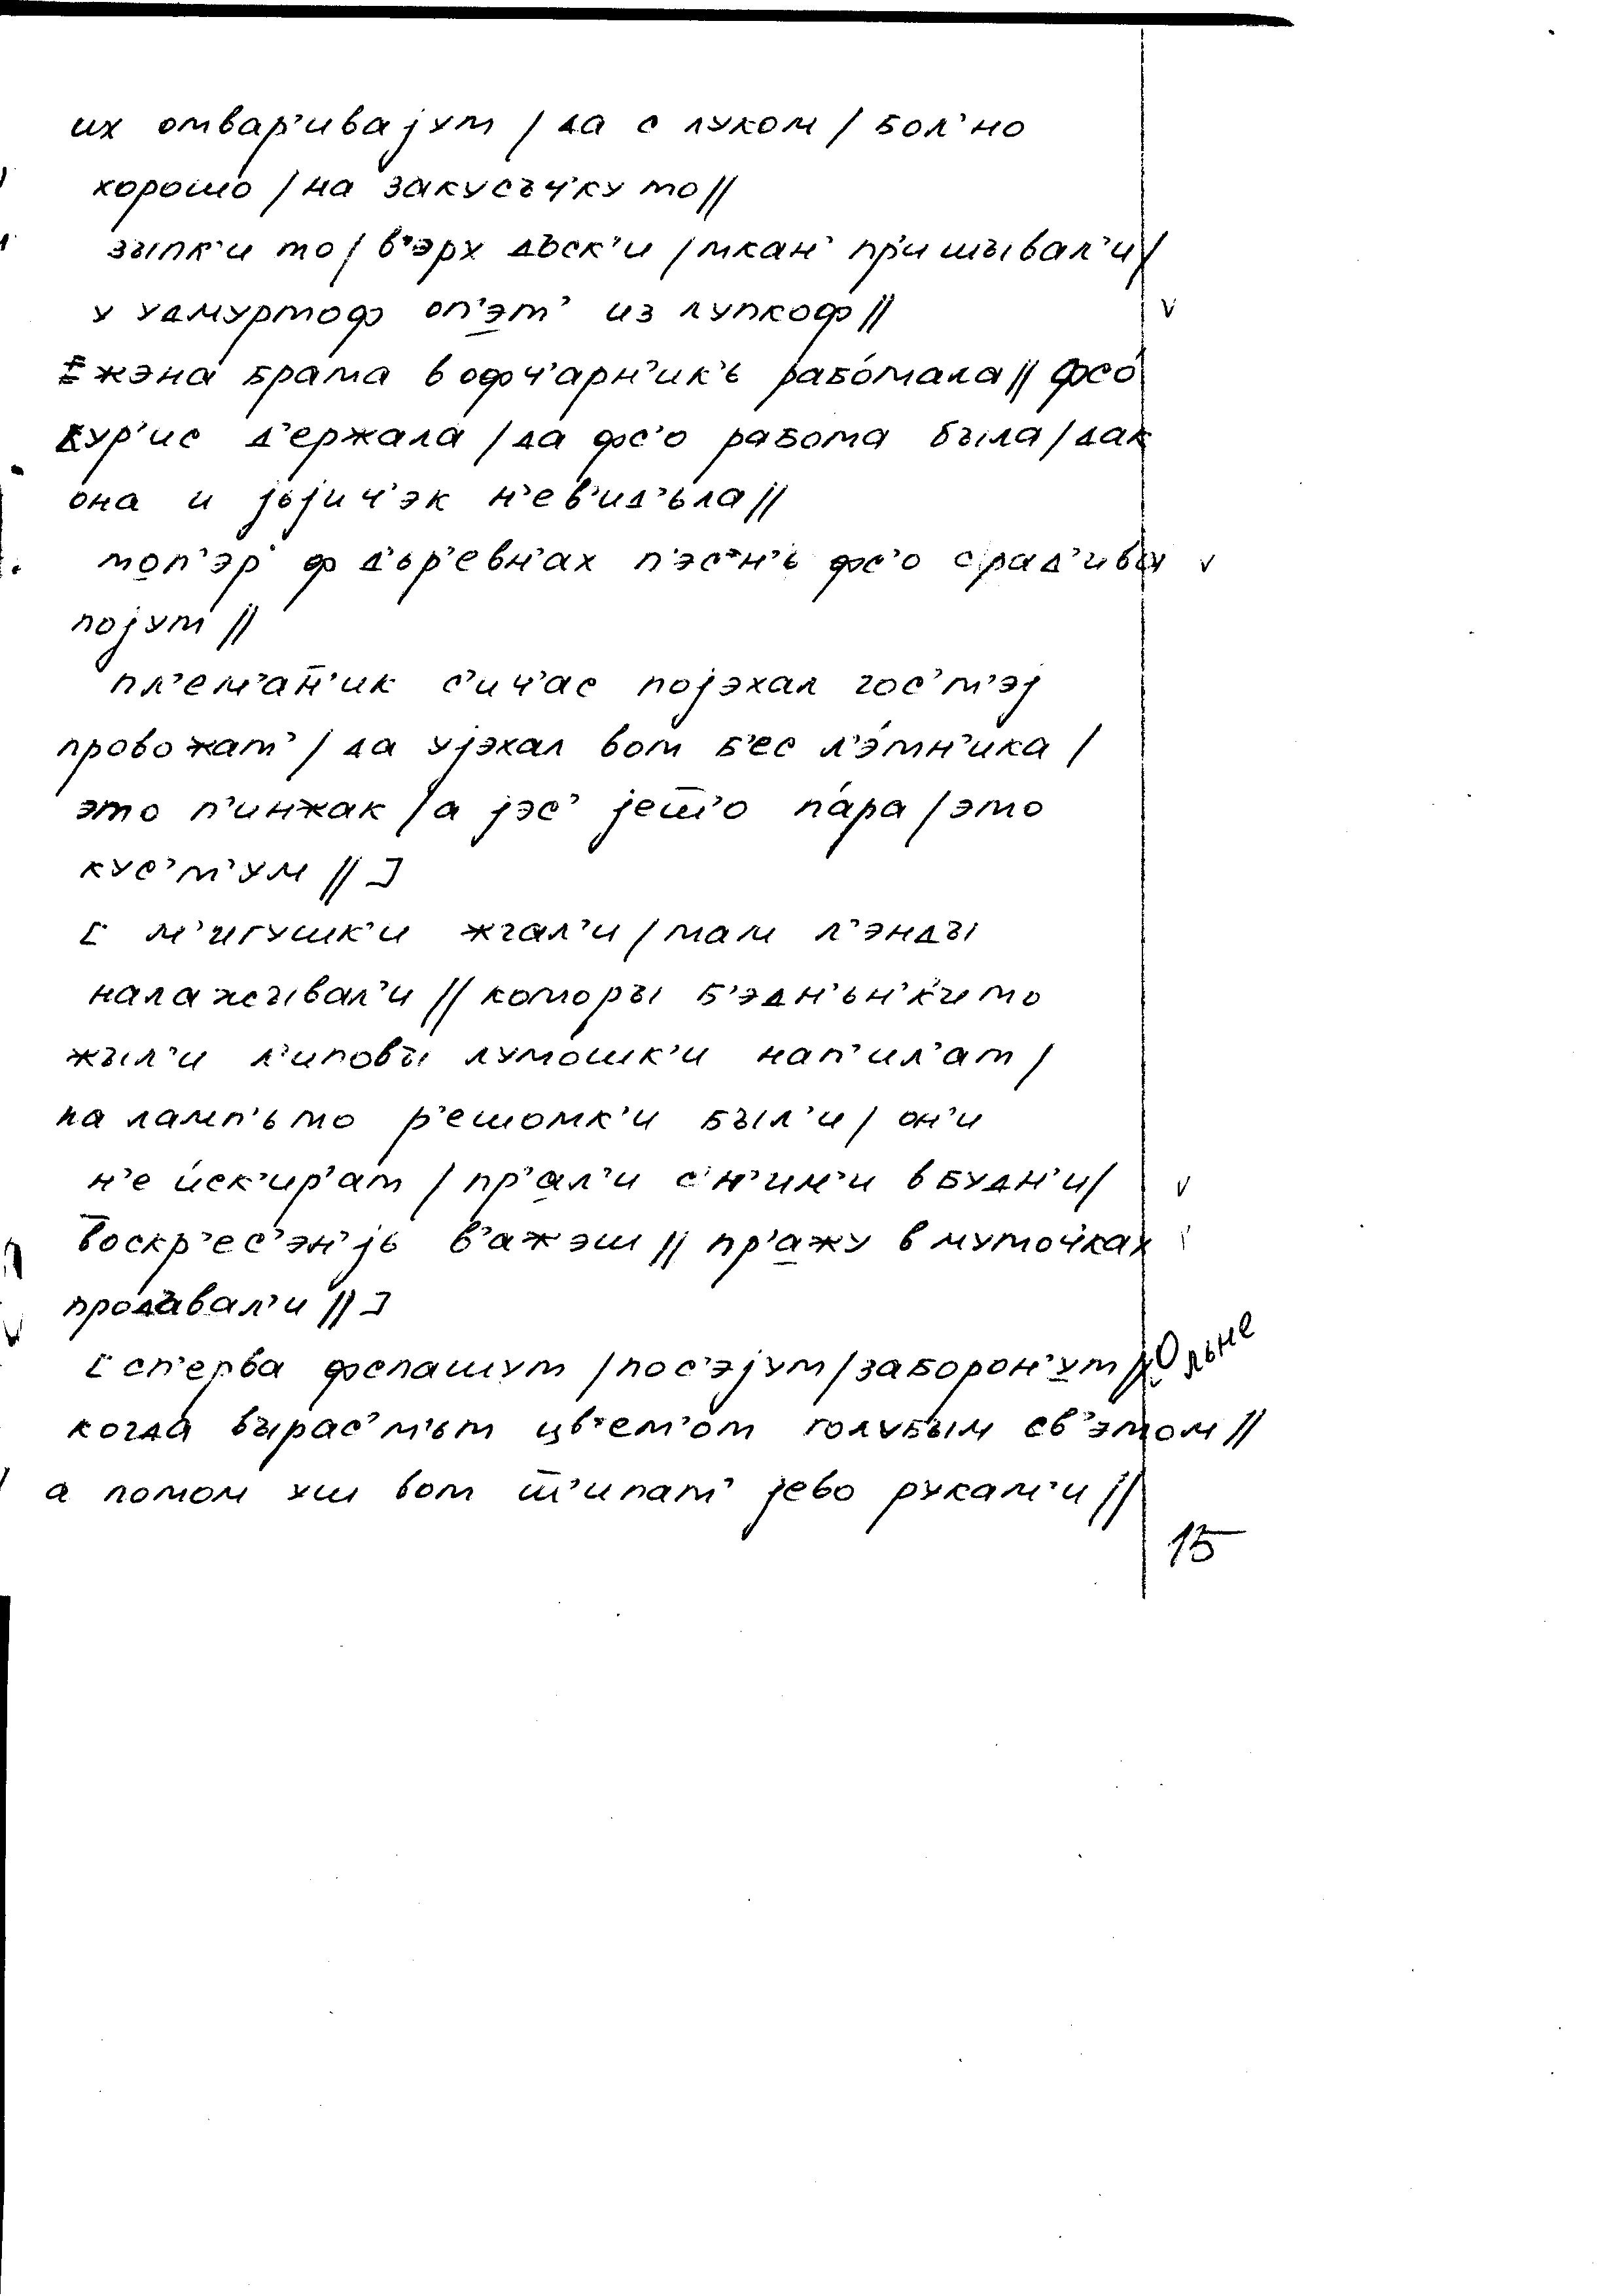 их отвар'ивајут / да с луком / бол'но
хорошо / на закусъч'ку то //
зыпк'и то / в'эрх дъск'и / ткан' пр'ишывал'и /
у удмуртоф оп'эт' из лупкоф //
жэна брата в офч'арн'ик'ь рабо́тала // фсо́
кур'ис д'ержала / да фс'о работа была / дак
она и јьјич'эк н'ев'ид'ьла //
топ'эр' ф д'ьр'евн'ах п'эс'н'ь фс'о с рад'ива
појут //
пл'ем'ан̄'ик с'ич'ас појэхал гос'т'эј
провожат' / да ујэхал вот б'ес л'э́тн'ика /
это п'инжак / а јэс' јеш̄'о па́ра / это
кус'т'ум // ]
[ м'игушк'и жгал'и / там л'энды
налажывал'и // которы б'эдн'ьн'к'ито
жыл'и л'иповы лутошк'и нап'ил'ат /
на ламп'ь то р'ешотк'и был'и / он'и
н'е и́ск'ир'ат / пр'ал'и с'н'им'и в будн'и /
воскр'ес'эн'јь в'ажэш // пр'ажу в муточ'ках
продавал'и // ]
[ сп'ерва фспашут / пос'эјут / заборон'ут // О льне
когда вырас'т'ьт цв'ет'от голубым св'этом //
а потом уш вот ш̄'ипат' јево рукам'и //
15